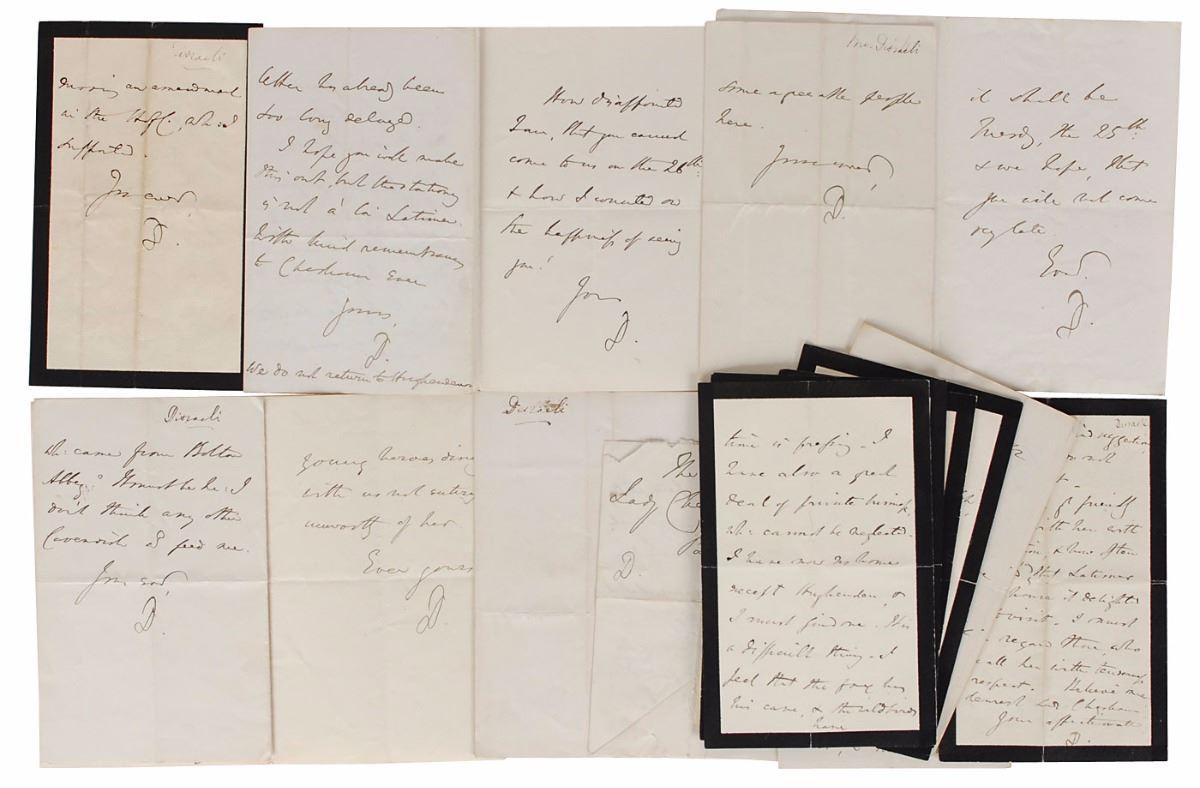 Disraeli
moving an amendment
in the H of C, wh: I
supported.
Yrs ever,
D.
letter has already been
too long delayed.
I hope you will make
this out, but the stationery
is not à la Latimer.
With kind remembrances
to Chesham Ever
Yours,
D.
We do not return to Hughenden
How disappointed
I am, that you cannot
come to us on the 26th:
& how I counted on
the happiness of seeing
you!
Yrs
D.
Mr. Disraeli
some agreeable people
here.
Yours ever,
D.
it shall be
Tuesday, the 25th
& we hope, that
you will not come
very late.
Ever
D.
Disraeli
wh: came from Bolton
Abbey? It must be he: I
don't think any other
Cavendish d feed me.
Yours ever,
D.
young heroes dine
with us not entirely
unworthy of her
Ever yours
D.
Disraeli
The
Lady Che
D.
time is pressing. I
have also a great
deal of private business
wh: cannot be neglected.
I have now no home
except Hughenden, &
I must find one. This is
a difficult thing. I
feel that the fox has
his cave, & the wild birds
have
Disraeli
not
friendly
with her with
& have often
that Latimer
house it delights
visit. I must
regard those who
all her with tenderness
respect. Believe me
dearest Lady Chesham
Your affectionate
D.